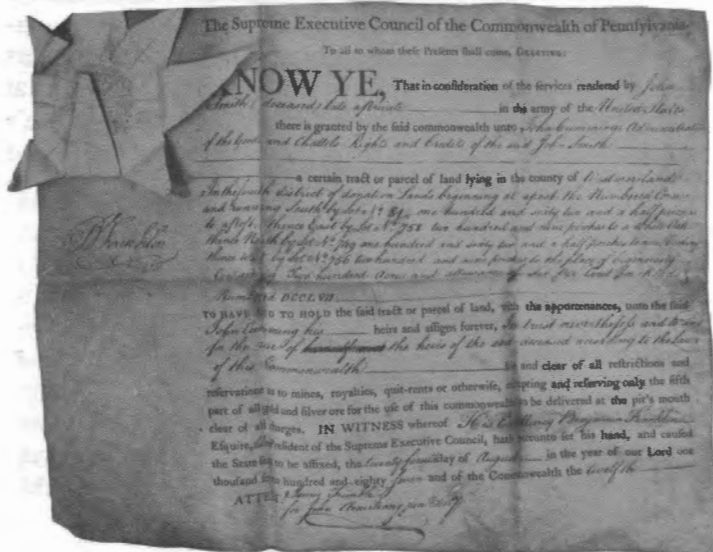 The Supreme Executive Council of the Commonwealth of Pennſylvania,
To all to whom theſe Preſents ſhall come, GREETING:
KNOW YE, That in conſideration of the ſervices rendered by John
Smith deceased late a private in the army of the United States
there is granted by the ſaid commonwealth unto John Cummings Administrator
of the Goods and Chattels Rights and Credits of the said John Smith
a certain tract or parcel of land lying in the county of
In the fourth district of donation Lands beginning at a post the Numbered Corner
and running South by Lot No. one hundred and sixty two and a half perches
to a Post, thence East by Lot No. 758 two hundred and nine perches to a White Oak
thence North by Lot No. one hundred and sixty two and a half perches to a
thence West by Lot No. 756 two hundred and nine perches to the place of beginning
Containing Two hundred Acres and allowance of Six
Numbered DCCLVII
TO HAVE AND TO HOLD the ſaid tract or parcel of land, with the appurtenances, unto the ſaid
John Cumming his heirs and aſſigns forever, In trust nevertheless and to and
for the use of the heirs of the said deceased according to the laws
of this Commonwealth free and clear of all reſtrictions and
reſervations as to mines, royalties, quit-rents or otherwiſe, excepting and reſerving only the fifth
part of all gold and ſilver ore for the uſe of this commonwealth to be delivered at the pit's mouth
clear of all charges. IN WITNESS whereof His Excellency Benjamin Franklin
Eſquire, Preſident of the Supreme Executive Council, hath hereunto ſet his hand, and cauſed
the State ſeal to be affixed, the twenty day of August in the year of our Lord one
thouſand ſeven hundred and eighty seven and of the Commonwealth the twelfth
ATTEST
for John Armstrong jun Secy
B Franklin